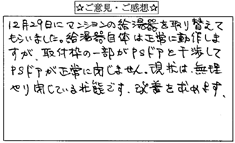 ☆ご意見・ご感想☆
12月29日にマンションの給湯器を取り替えて
もらいました。給湯器自体は正常に動作しま
すが、取付枠の一部がPSドアと干渉して
PSドアが正常に閉じません。現状は、無理
やり閉じている状態です。改善を求めます。